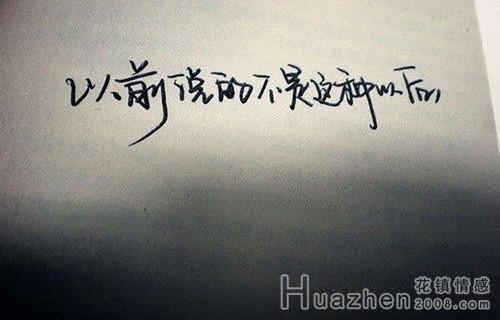 以前说的不是这种以后
花镇情感
Huazhen
2008.com